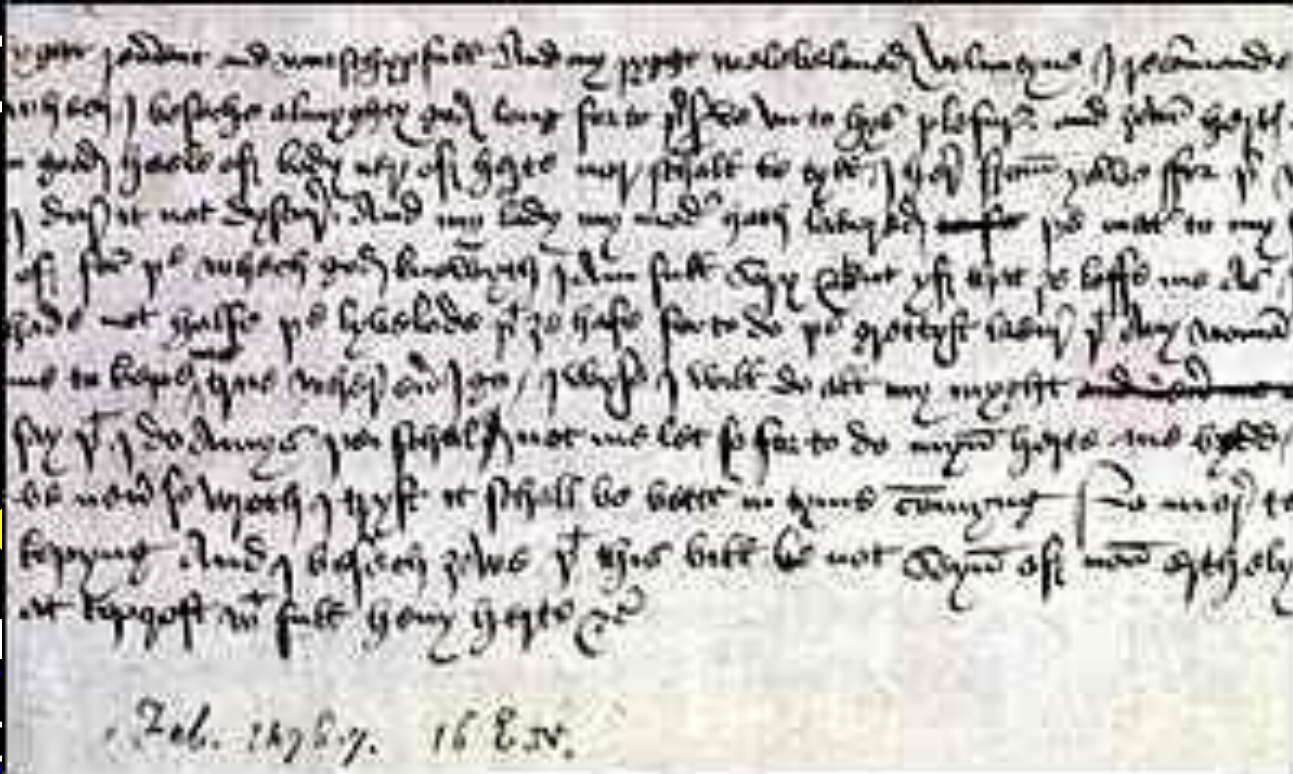 reverent and wurschypfull And my ryght welebeloued Voluntyne I recommande
whech I beseche almyghty god long for to p̄serve vn to hys plesur and ȝowr hertys
good heele of body ner of herte nor schall be tyll I her from ȝowe ffor þer
I dar it not dyscur And my lady my moder hath labored þe mater to my
of for þe whech god knowyth I am full sory But yf þt ȝe loffe me as
hade not halfe þe lyvelode þt ȝe hafe for to do þe grettyst labur þt any woman
me to kepe me true wherever I go I wyse I will do all my myght
say þt I do amys þei schal not me let so for to do myn herte me bydds
be never so wroth I tryst it schall be better in tyme commyng No mor to
kepyng And I besech ȝowe þt this bill be not seyn of non erthely
at Topcroft wt full hevy herte &c
Feb. 16 E.IV.